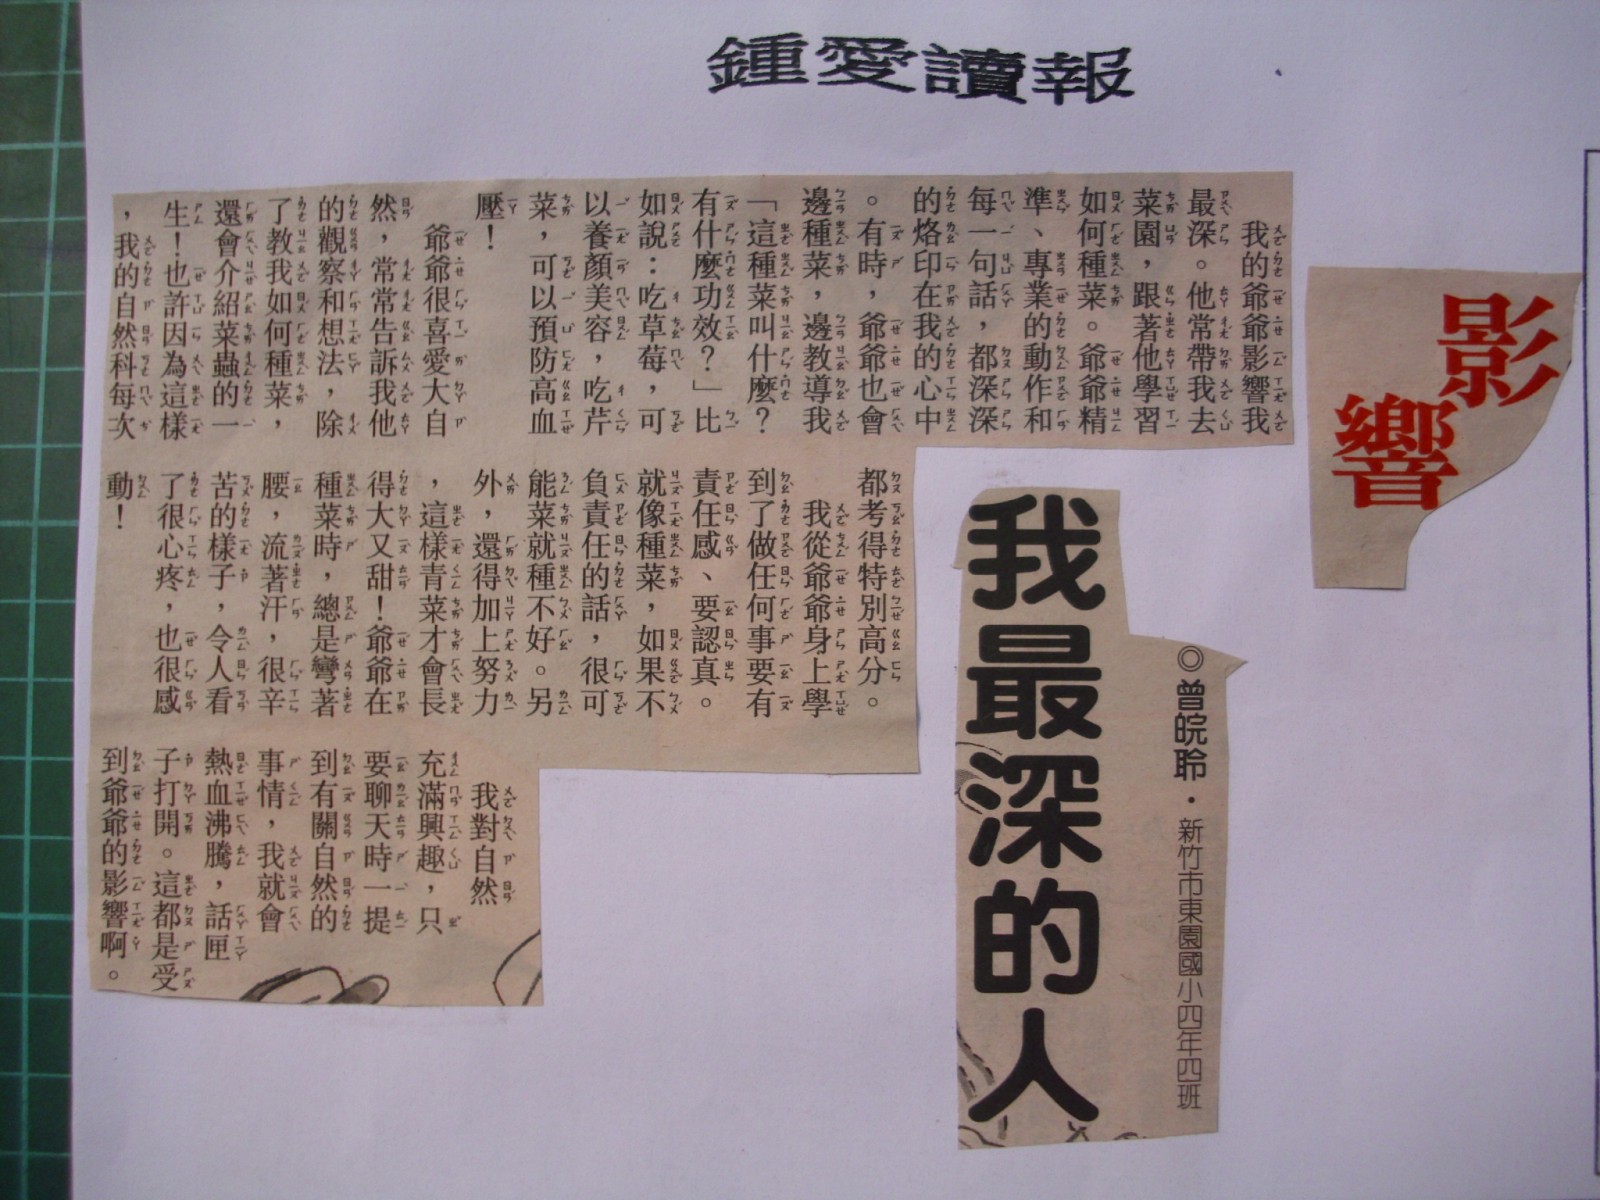 鍾愛讀報
影響
我最深的人
◎曾皖聆・新竹市東園國小四年四班
我的爺爺影響我
最深。他常帶我去
菜園，跟著他學習
如何種菜。爺爺精
準、專業的動作和
每一句話，都深深
的烙印在我的心中
。有時，爺爺也會
邊種菜，邊教導我
「這種菜叫什麼？
有什麼功效？」比
如說：吃草莓，可
以養顏美容，吃芹
菜，可以預防高血
壓！
爺爺很喜愛大自
然，常常告訴我他
的觀察和想法，除
了教我如何種菜，
還會介紹菜蟲的一
生！也許因為這樣
，我的自然科每次
都考得特別高分。
我從爺爺身上學
到了做任何事要有
責任感、要認真。
就像種菜，如果不
負責任的話，很可
能菜就種不好。另
外，還得加上努力
，這樣青菜才會長
得大又甜！爺爺在
種菜時，總是彎著
腰，流著汗，很辛
苦的樣子，令人看
了很心疼，也很感
動！
我對自然
充滿興趣，只
要聊天時一提
到有關自然的
事情，我就會
熱血沸騰，話匣
子打開。這都是受
到爺爺的影響啊。